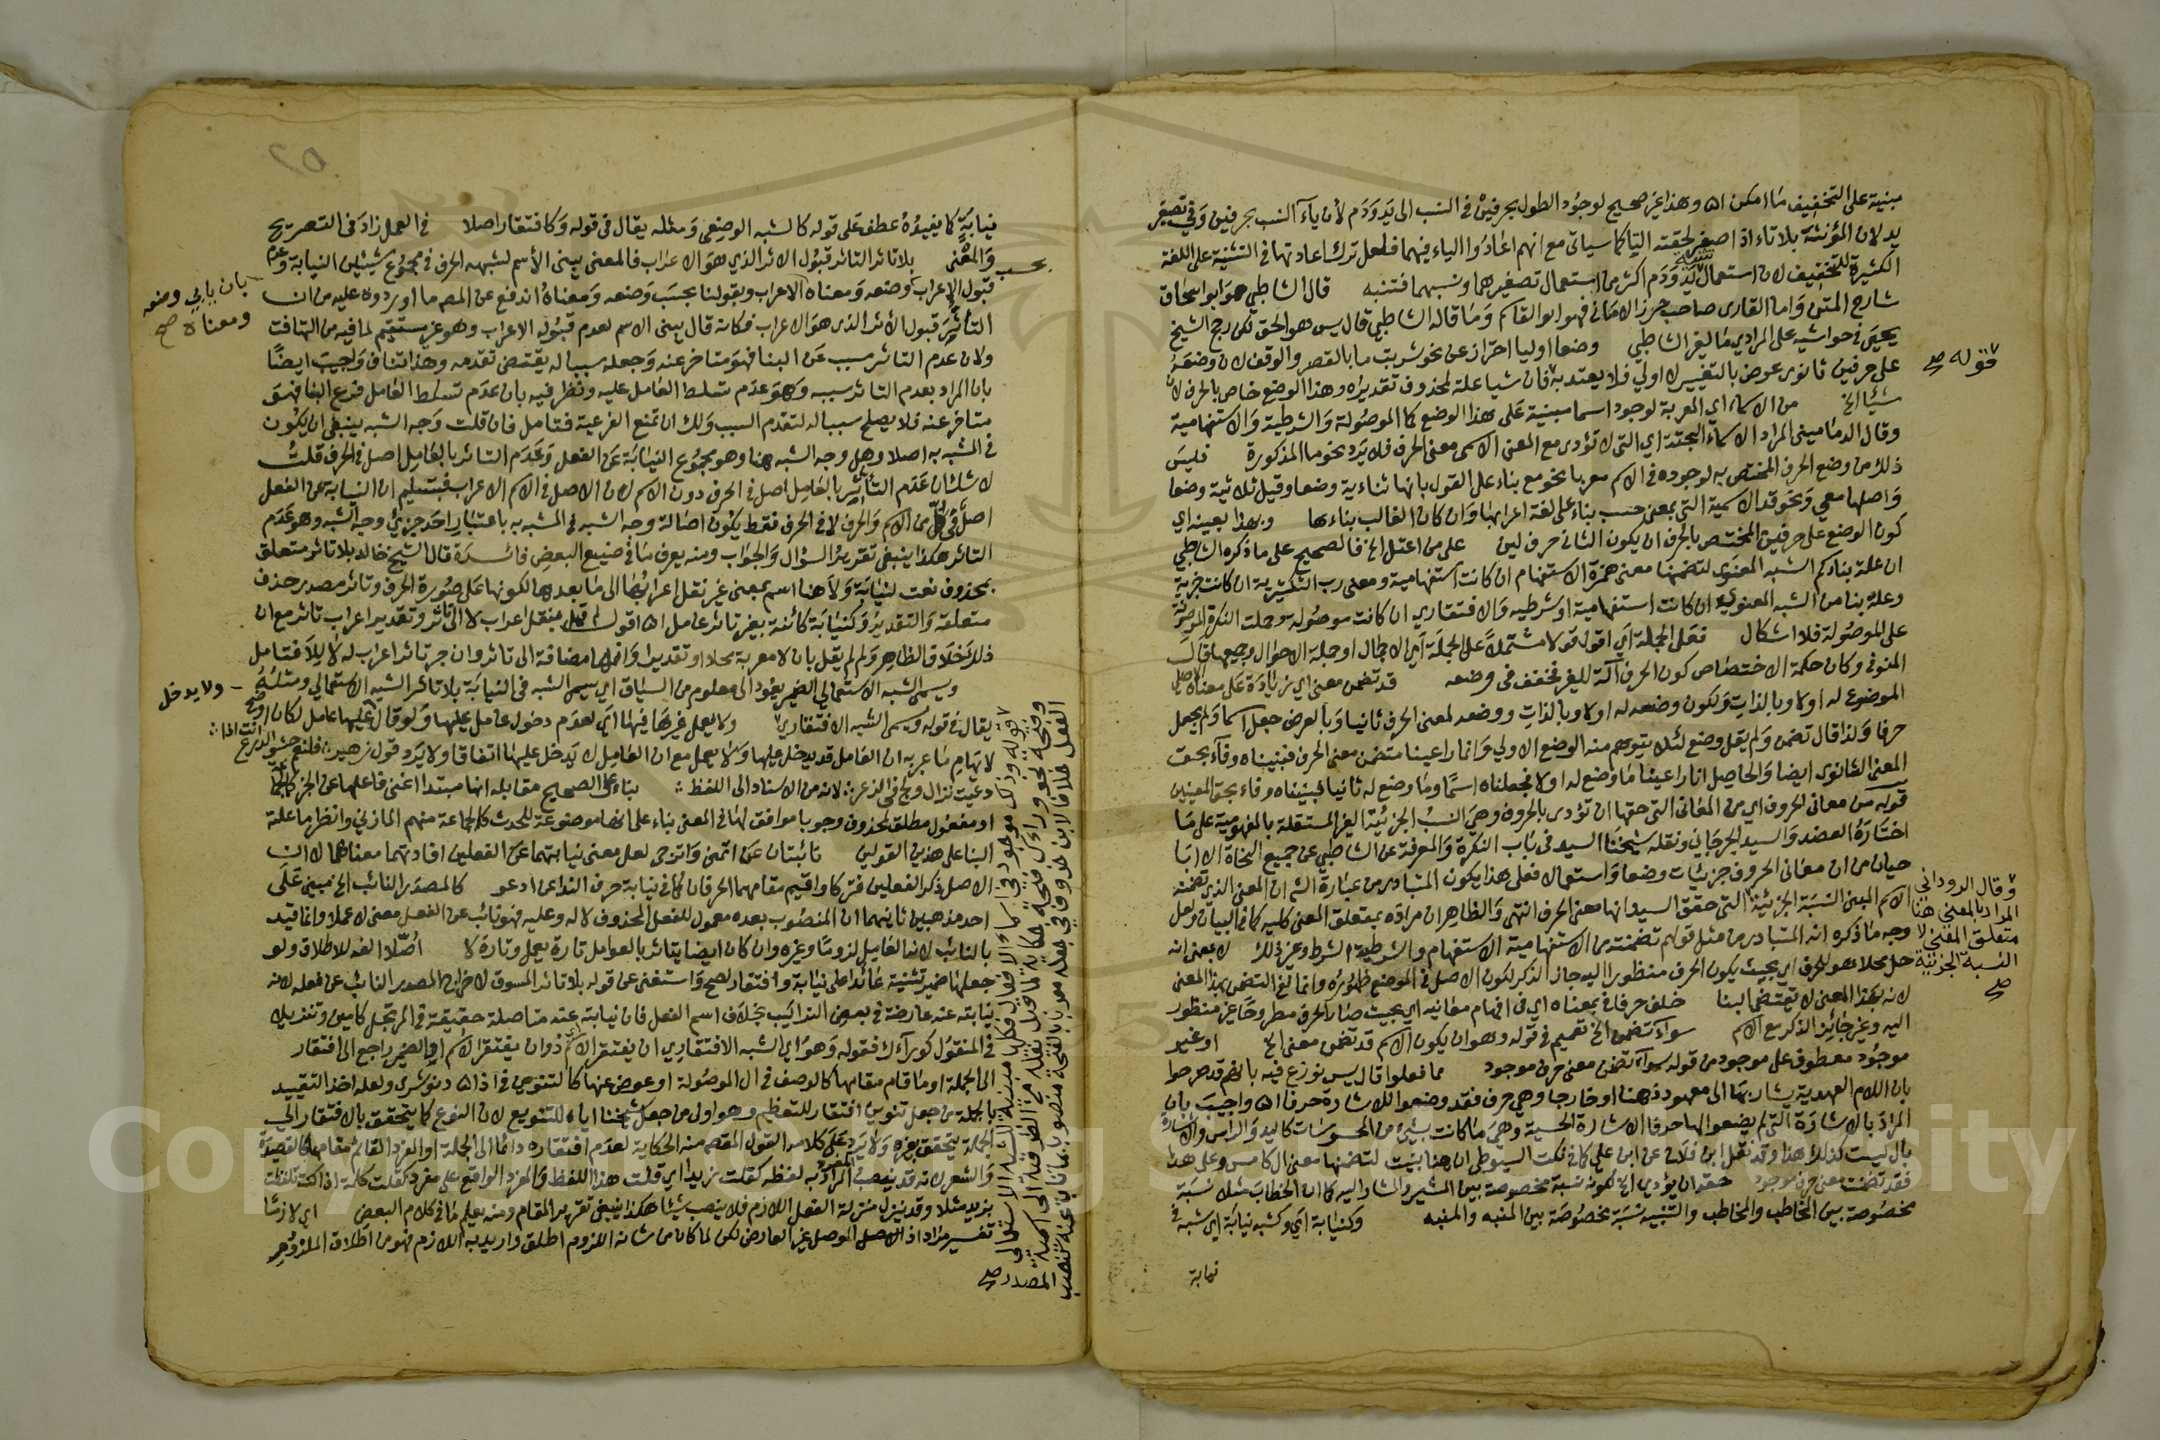 مبنية على التخفيف ما امكن اه وهذا غير صحيح لوجود الطول بحرفين في النسب الى يد ودم لأن ياء النسب بحرفين وفي تصغير
يد لان المؤنثة بلا تاء اذا صغر لحقته التا كما سياتي مع انهم اعادوا الياء فيهما فلعل ترك اعادتها في التثنية على اللغة
الكثيرة للتخفيف لان استعمال تثنية يد ودم اكثر من استعمال تصغيرهما ونسبهما فتنبه قال الشاطبي هو ابو اسحاق
شارح المتن واما القارى صاحب حرز الاماني فهو ابو القاسم وما قاله الشاطبي قال يس هو الحق لكن رجح الشيخ
يحيى في حواشيه على المرادي ما لغير الشاطبي وضعا اوليا احتراز عن نحو شربت ما بالقصر والوقف لان وضعه
على حرفين ثانوى عوض بالتغيير لا اولي فلا يعتد به فان شيا علة لمحذوف تقديره وهذا الوضع خاص بالحرف لان
شيئا الخ من الاسماء اي المعربة لوجود اسما مبنية على هذا الوضع كما الموصولة والشرطية والاستفهامية
وقال الدماميني المراد الاسماء البحتة اي التي لا تؤدى مع المعنى الاسمي معنى الحرف فلا يرد نحو ما المذكورة فليس
ذلك من وضع الحرف المختص به لوجوده في الاسم معربا نحو مع بناء على القول بانها ثنائية وضعا وقيل ثلاثية وضعا
واصلها معي ونحو قد الاسمية التي بمعنى حسب بناء على لغة اعرابها وان كان الغالب بناءها وبهذا بعينه اي
كون الوضع على حرفين المختص بالحرف ان يكون الثاني حرف لين على من اعتل الخ فالصحيح على ما ذكره الشاطبي
ان علة بناء كم الشبه المعنوي لتضمنها معنى همزة الاستفهام ان كانت استفهامية ومعنى رب التكثيرية ان كانت خبرية
وعلة بنا من الشبه المعنوي ان كانت استفهامية او شرطية والافتقاري ان كانت موصولة وحملت النكرة الموصوفة
على الموصولة فلا اشكال فعلى الجملة اي اقول قولا مشتملا على الجملة اي الاجمال او جملة الاحوال وجميعها قال
المنوفي وكان حكمة الاختصاص كون الحرف آلة للغير فخفف في وضعه قد تضمن معنى اي زيادة على معناه الاصلي
الموضوع له اولا وبالذات ولكون وضعه له اولا وبالذات ووضعه لمعنى الحرف ثانيا وبالعرض جعل اسما ولم يجعل
حرفا ولذا قال تضمن ولم يقل وضع لئلا يتوهم منه الوضع الاولي وانما راعينا متضمن معنى الحرف فبنيناه وفاء بحق
المعنى الثانوى ايضا والحاصل انا راعينا ما وضع له اولا فجعلناه اسما وما وضع له ثانيا فبنيناه وفاء بحق المعنيين
قوله من معانى الحروف اي من المعاني التي حقها ان تؤدى بالحروف وهي النسب الجزئية الغير المستقلة بالمفهومية على ما
اختاره العضد والسيد الجرجاني ونقله شيخنا السيد في باب النكرة والمعرفة عن الشاطبي عن جميع النحاة الا ابا
حيان من ان معانى الحروف جزئيات وضعا واستعمالا فعلى هذا يكون المتبادر من عبارة الشم ان المعنى الذي تضمنه
الاسم المبني النسبة الجزئية التي حقق السيد انها معنى الحرف انتهى والظاهر ان مراده بمتعلق المعنى كليه كما في البيان ولعل
وجه ما ذكره انه المتبادر من مثل قولهم تضمنت من الاستفهامية الاستفهام والشرطية الشرط وغير ذلك لا بمعنى انه
حل محلا هو للحرف اي بحيث يكون الحرف منظورا اليه جائز الذكر لكون الاصل في الموضع ظهوره وانما لغ التضمن بهذا المعنى
لانه بهذا المعنى لا يقتضي البنا خلف حرفا في معناه اي في افهام معانيه اي بحيث صار الحرف مطروحا غير منظور
اليه وغير جائز الذكر مع الاسم سواء تضمن الخ تعميم في قوله وهو ان يكون الاسم قد تضمن معنى الخ او غير
موجود معطوف على موجود من قوله سواء تضمن معنى حرف موجود مما فعلوا قال يس نوزع فيه بانهم قد صرحوا
بان اللام العهدية يشار بها الى معهود ذهنا او خارجا وهي حرف فقد وضعوا للاشارة حرفا اه واجيب بان
المراد بالاشارة التي لم يضعوا لها حرفا الاشارة الحسية وهي ما كانت بشيء من المحسوسات كاليد والراس والاشارة
بال ليست كذلك هذا وقد نقل ابن فلاح عن ابي علي كما في نكت السيوطي ان هنا بنيت لتضمنها معنى ال كامس وعلى هذا
فقد تضمنت معنى حرف موجود حقه ان يؤدى الخ لكونه نسبة مخصوصة بين المشير والمشار اليه كما ان الخطاب مثلا نسبة
مخصوصة بين المخاطب والمخاطب والتنبيه نسبة مخصوصة بين المنبه والمنبه وكنيابة اي وكشبه نيابة اي شبه في
نيابة
قوله صح
وقال الروداني
المراد بالمعنى هنا
متعلق المعنى لا
النسبة الجزئية
صح
نيابة كما يفيده عطفه على قوله كالشبه الوضعي ومثله يقال في قوله وكافتقار اصلا في العمل زاد في التصريح
والمعنى بلا تاثر التاثر قبول الاثر الذي هو الاعراب فالمعنى يبنى الأسم لشبهه الحرف في مجموع شيئين النيابة وعدم
قبول الاعراب وضعه ومعناه الاعراب وبقولنا بحسب وضعه ومعناه اندفع عن المصم ما اوردوه عليه من ان
التاثر قبول الاثر الذي هو الاعراب فكانه قال يبنى الاسم لعدم قبوله الاعراب وهو غير مستقيم لما فيه من التهافت
ولان عدم التاثر سبب عن البنا فهو متاخر عنه وجعله سببا له يقتضي تقدمه وهذا تناف واجيب ايضا
بان المراد بعدم التاثر سببه وهو عدم تسلط العامل عليه ونظر فيه بان عدم تسلط العامل فرع البنا فهو
متاخر عنه فلا يصلح سببا له لتقدم السبب ولك ان تمنع الفرعية فتامل فان قلت وجه الشبه ينبغي ان يكون
في المشبه به اصلا وهل وجه الشبه هنا وهو مجموع النيابة عن الفعل وعدم التاثر بالعامل اصل في الحرف قلت
لا شك ان عدم التاثر بالعامل اصل في الحرف دون الاسم لان الاصل في الاسم الاعراب فبتسليم ان النيابة عن الفعل
اصل في كل من الاسم والحرف لا في الحرف فقط يكون اصالة وجه الشبه في المشبه به باعتبار احد جزئي وجه الشبه وهو عدم
التاثر هكذا ينبغي تقرير السؤال والجواب ومنه يعرف ما في صنيع البعض فائدة قال الشيخ خالد بلا تاثر متعلق
بمحذوف نعت لنيابة ولا هنا اسم بمعنى غير نقل اعرابها الى ما بعدها لكونها على صورة الحرف وتاثر مصدر حذف
متعلقه والتقدير وكنيابة كائنة بغير تاثر بعامل اه اقول لم يقل ينقل اعراب لا الى تاثر وتقدير اعراب تاثر مع ان
ذلك خلاف الظاهر ولم لم يقل بان لا معربة محلا او تقديرا وانها مضافة الى تاثر وان جر تاثر اعراب له لا يلا فتامل
ويسمى الشبه الاستعمالي الضمير يعود الى معلوم من السياق اي يسمى الشبه في النيابة بلا تاثر الشبه الاستعمالي ومثله
يقال في قوله ويسمى الشبه الافتقاري ولا يعمل غيرها فيها اي لعدم دخول عامل عليها ولو قال عليها عامل لكان اوضح
لايهام ما عبر به ان العامل قد يدخل عليها ولا يعمل مع ان العامل لا يدخل عليها اتفاقا ولا يرد قول زهير فلنعم حشو الدرع انت اذا
دعيت نزال ولج في الذعر لانه من الاسناد الى اللفظ بناء على الصحيح مقابله انها مبتدا اغنى فاعلها عن الخبر
او مفعول مطلق لمحذوف وجوبا موافق لها في المعنى بناء على انها موضوعة للحدث كما لجماعة منهم المازني وانظر ما علة
البنا على هذين القولين نائبتان عن اتمنى واترجى لعل معنى نيابتهما عن الفعلين افادتهما معناهما لا ان
الاصل ذكر الفعلين فتركا واقيم مقامهما الحرفان كما في نيابة حرف النداء عن ادعو كالمصدر النائب الخ مبني على
احد مذهبين ثانيهما ان المنصوب بعده معمول للفعل المحذوف لا له وعليه فهو نائب عن الفعل معنى لا عملا وانما قيد
بالنائب لانه العامل لزوما وغيره وان كان ايضا يتاثر بالعوامل تارة يعمل وتارة لا اصلا الفه للاطلاق ولو
جعلها ضمير تثنية عائدا على نيابة وافتقار لصح واستغنى عن قوله بلا تاثر المسوق لاخراج المصدر النائب عن فعله لانه
نيابته عنه عارضة في بعض التراكيب بخلاف اسم الفعل فان نيابته عنه متاصلة حقيقة في المرتجل كآمين وتنزيلا
في المنقول كوراءك فقوله وهو اي الشبه الافتقاري ان يفتقر الاسم اذ وان يفتقر الاسم او الضمير راجع الى افتقار
الى الجملة او ما قام مقامها كالوصف في ال الموصولة او عوض عنها كالتنوين في اذ اه دنوشري ولعله اخذ التقييد
بالجملة من جعل تنوين افتقار للتعظيم وهو اولى من جعل شيخنا اياه للتنويع لان النوع كما يتحقق بالافتقار الى
الجملة يتحقق بغيره ولا يرد على كلامه القول المقصود منه الحكاية لعدم افتقاره دائما الى الجملة او المفرد القائم مقامها كالقصيدة
والشعر لانه قد ينصب المفرد المراد به لفظه كقلت زيدا اي قلت هذا اللفظ والمفرد الواقع على مفرد كقلت كلمة اذا كنت تلفظت
بزيد مثلا وقد ينزل منزلة الفعل اللازم فلا ينصب شيئا هكذا ينبغي تقرير المقام ومنه يعلم ما في كلام البعض اي لازما
تفسير مراد اذ الاصل الموصل غير العارض لكن لما كان من شانه اللزوم اطلق واريد به اللازم فهو من اطلاق الملزوم
بحسب
بان يابى وضعه
ومعناه صح
ولا يدخل
المصدر صح